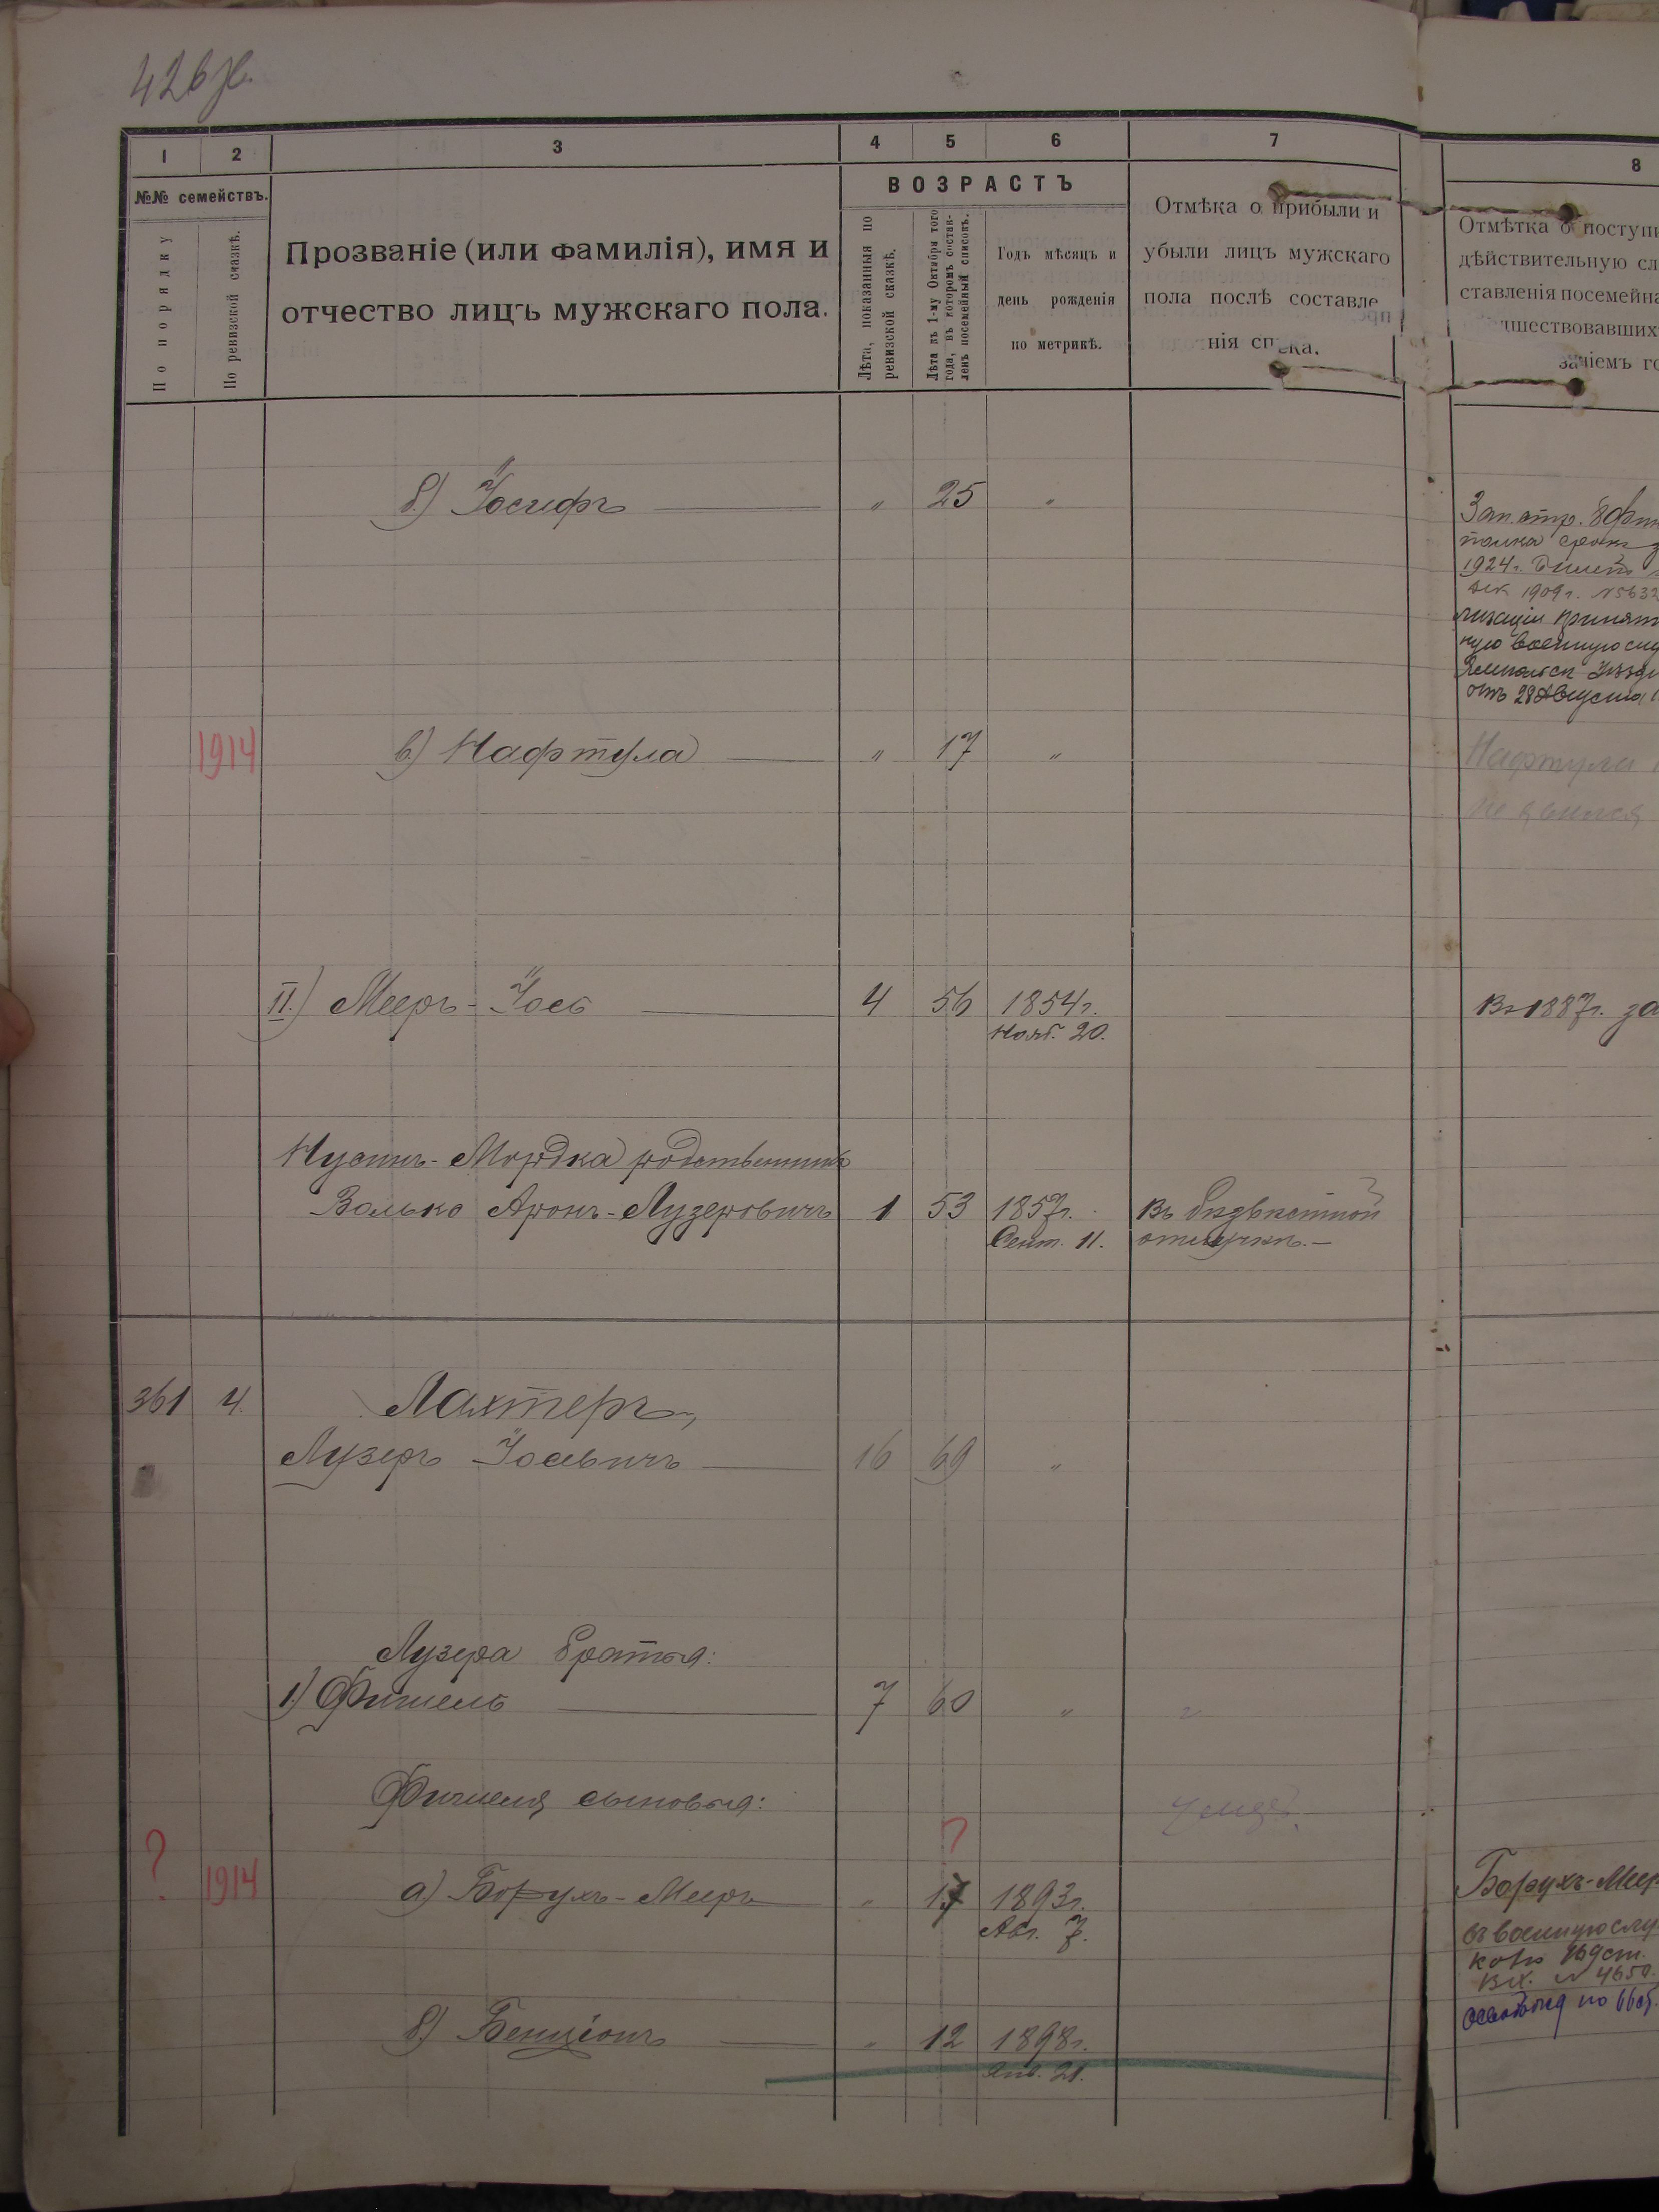 426 об.
1 2 3 4 5 6 7 8
№№ семействъ.
По порядку
По ревизской сказкѣ.
Прозваніе (или фамилія), имя и
отчество лицъ мужскаго пола.
ВОЗРАСТЪ
Лѣта, показанныя по
ревизской сказкѣ.
Лѣта къ 1-му Октября того
года, въ которомъ состав-
ленъ посемейный списокъ.
Годъ мѣсяцъ и
день рожденія
по метрикѣ.
Отмѣка о прибыли и
убыли лицъ мужскаго
пола послѣ составле
нія списка.
Отмѣтка о поступи
дѣйствительную сл
ставленія посемейна
дшествовавшихъ
заніемъ го
б) Іосифъ " 25 "
Зап. стр. 8 Фин
полка срокъ
1924 г. Билетъ
Дек. 1909 г. № 5632
лизаціи принятъ
ную военную слу
Ямпольск Уѣздн
отъ 28 Августа
1914 в) Нафтула " 17 "
Нафтула
не явился
II.) Мееръ-Іось 4 56 1854 г.
Нояб. 20.
Въ 1887 г. за
Нусинъ-Мордка родственникъ
Волько Аронъ-Лузеровичъ 1 53 1857 г. Въ безвѣстной
Сент. 11. отлучкѣ.—
361 4. Лахтеръ,
Лузеръ Іосевичъ 16 69 "
Лузера братья:
1) Фишель 7 60 " "
Фишеля сыновья:
? ?
1914 а) Борухъ-Мееръ " 17 1893 г.
Авг. 7.
Борухъ-Меер
въ военную слу
Вх. № 4650.
б) Бенціонъ " 12 1898 г.
Янв. 21.